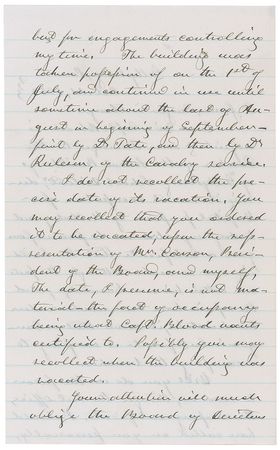 but for engagements controlling
my time. The building was
taken possession of on the 1st of
July, and continued in use until
sometime about the last of Au-
gust or beginning of September-
first by Dr Tate, and then by Dr
of the Cavalry service.
I do not recollect the pre-
cise date of its vacation. You
may recollect that you ordered
it to be vacated, upon the rep-
resentation of Mr. Presi-
dent of the Board, and myself.
The date, I presume, is not ma-
terial - the fact of occupancy
being what Capt. Blood wants
certified to. Possibly you may
recollect when the building was
vacated.
Your attention will much
oblige the Board of Directors